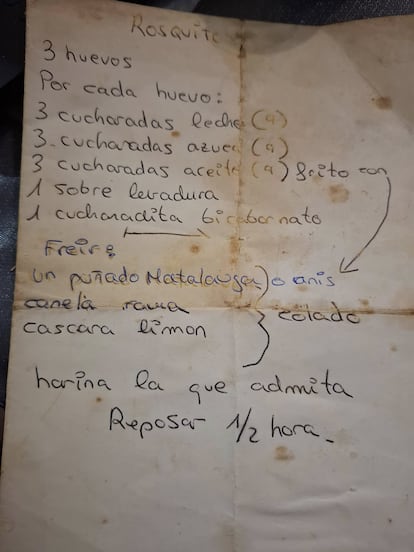 Rosquito
3 huevos
Por cada huevo:
3 cucharadas leche (9)
3 cucharadas azucar (9)
3 cucharadas aceite (9) frito con
1 sobre levadura
1 cucharadita bicabornato
Freir:
un puñado Matalauga) o anis
canela rama
cascara limon
colado
harina la que admita
Reposar 1/2 hora.